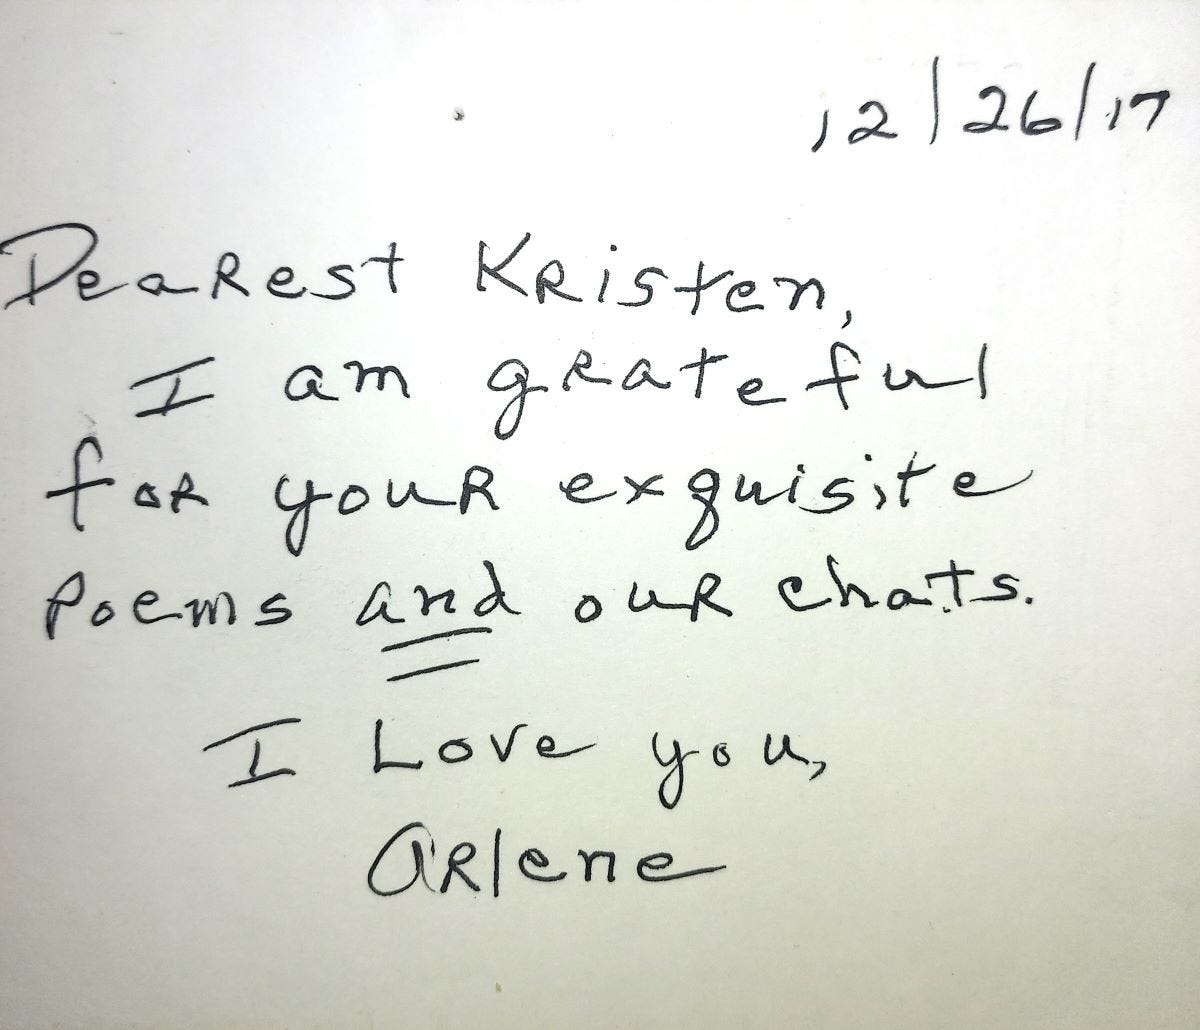 12/26/17
Dearest Kristen,
I am grateful
for your exquisite
Poems and our chats.
I Love you,
Arlene